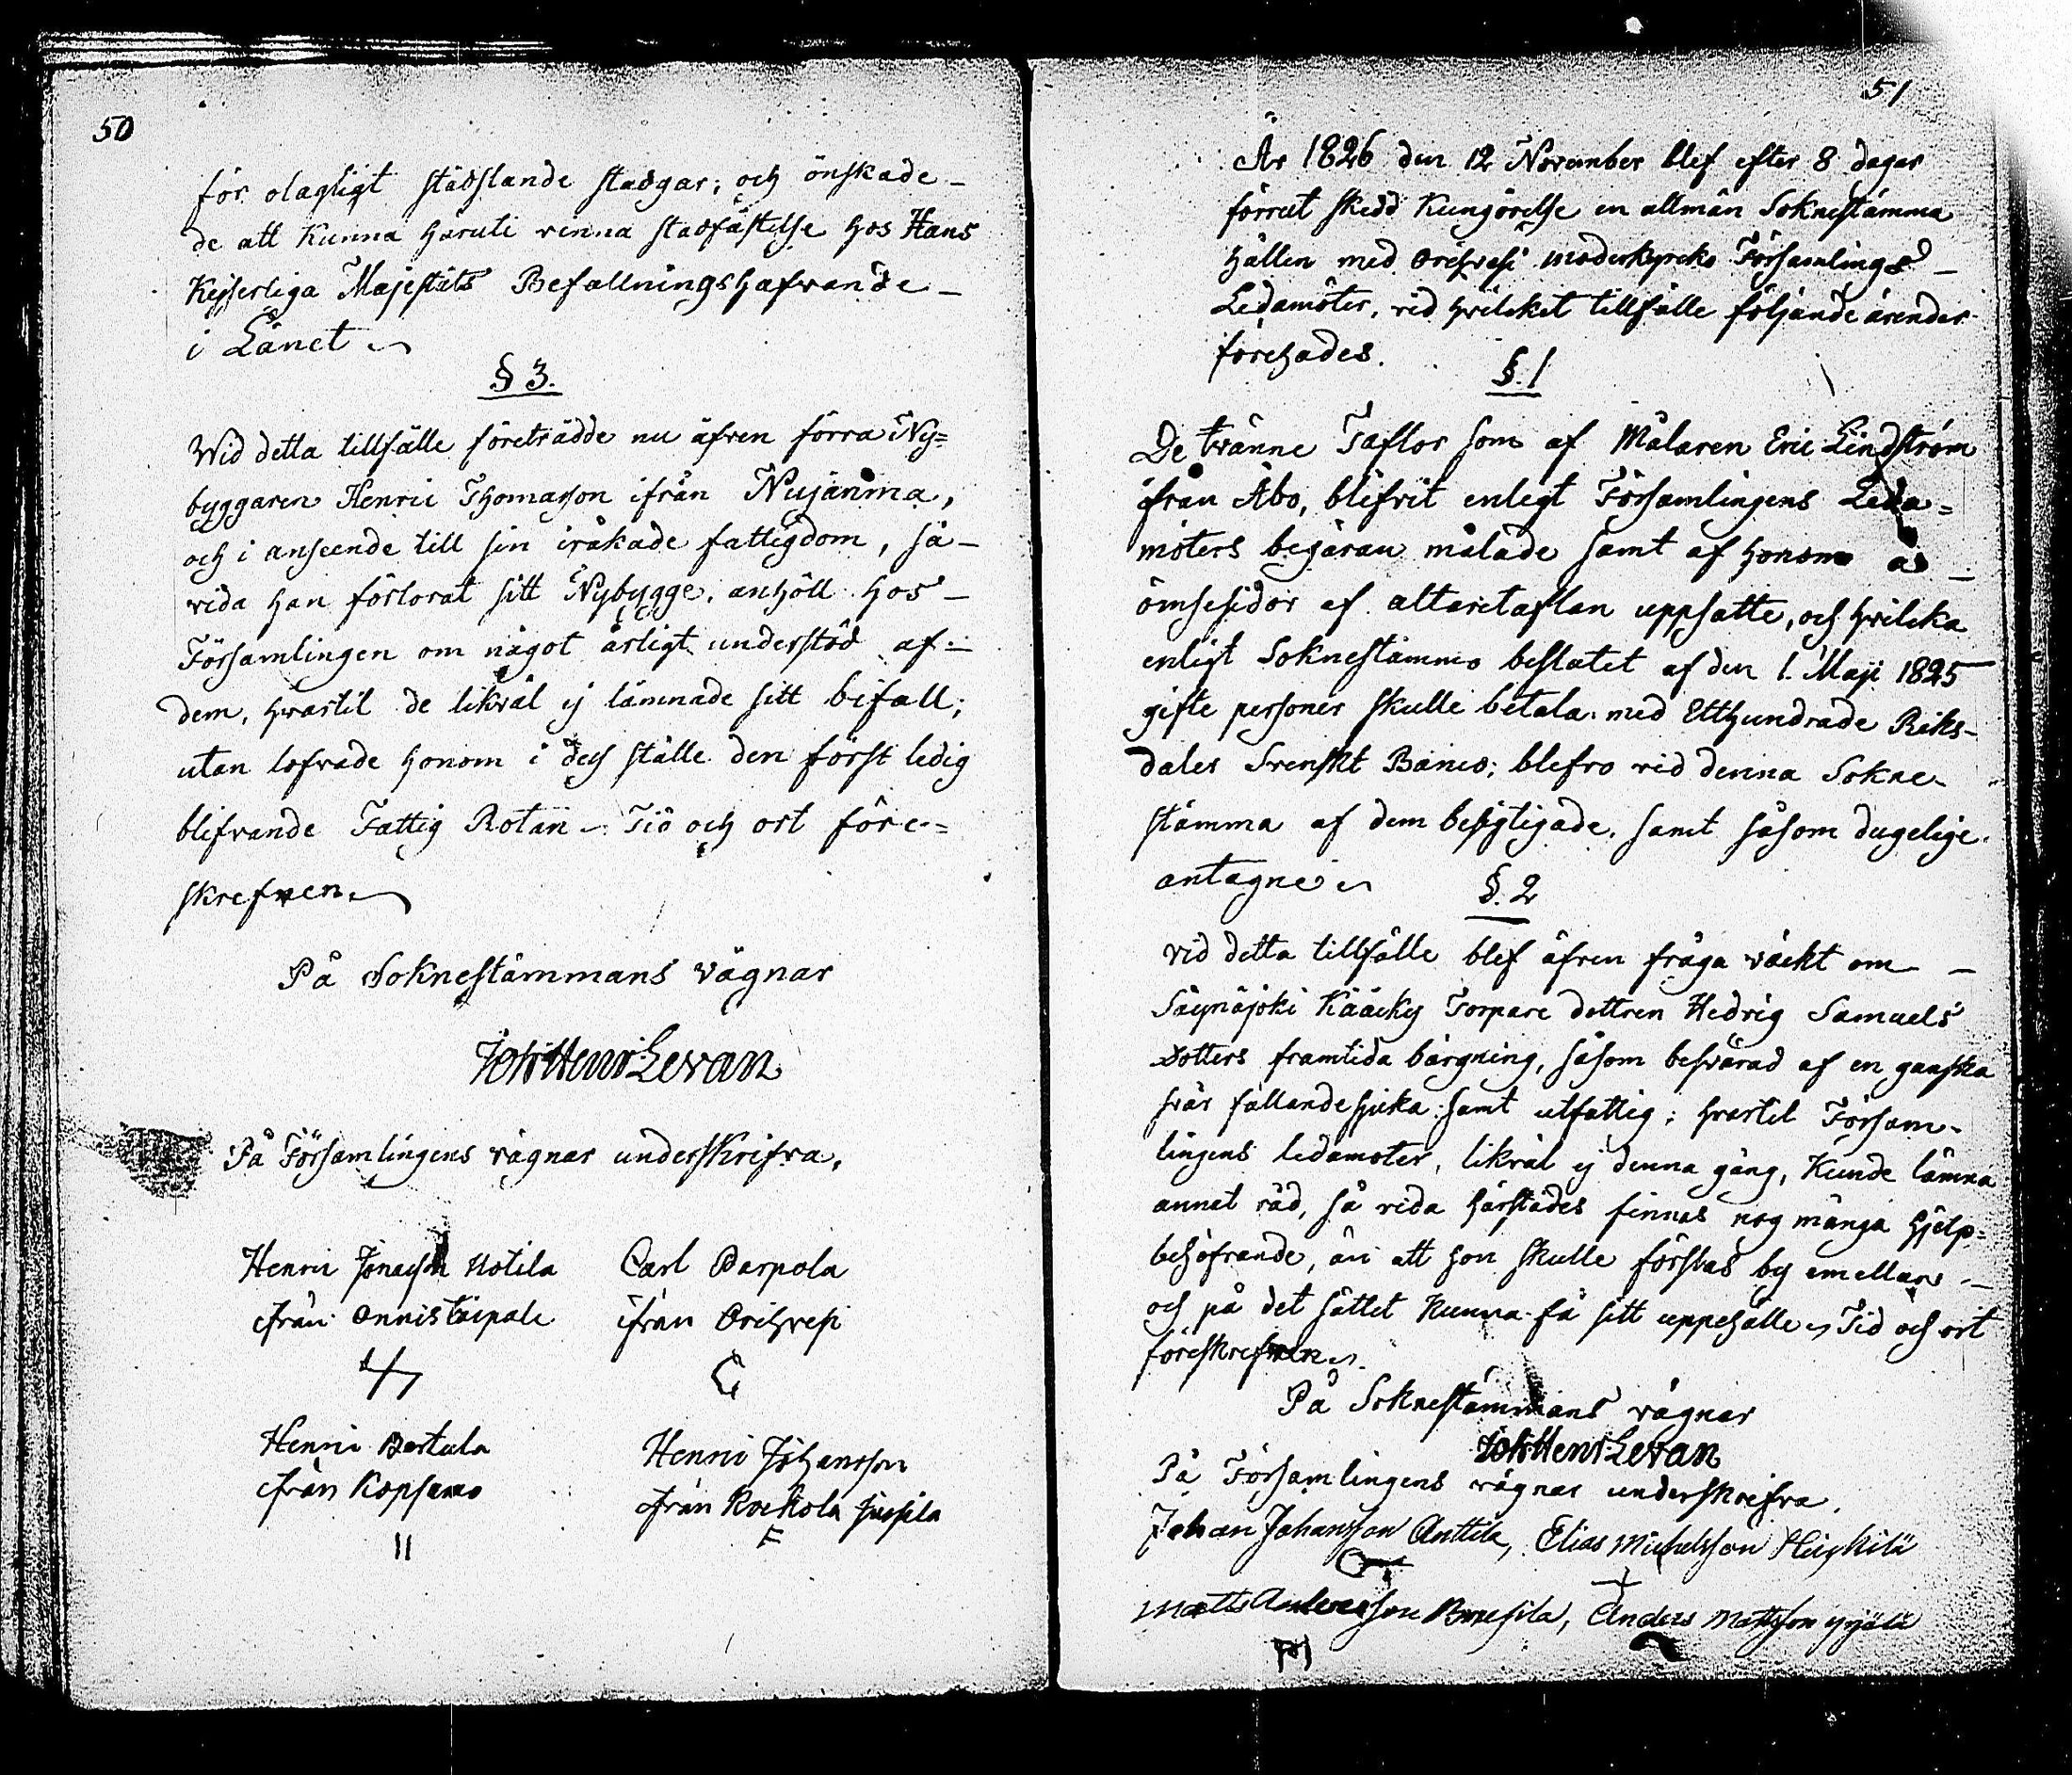 50
för olagligt städslande stadgar; och önskade-
de att Kunna häruti vinna stadfästelse hos Hans
Keiserliga Majestäts Befallningshafvande
i Länet
§ 3.
Wid detta tillfälle företrädde nu äfven förra Ny=
byggaren Henric Thomasson ifrån Nujänma,
och i anseende till sin iråkade fattigdom, så-
vida han förlorat sitt Nybygge, anhöll hos
Församlingen om något årligt understöd af
dem, hvartil de likväl ej lämnade sitt bifall;
utan lofvade honom i dess ställe den först ledig
blifvande Fattig Rotan. Tid och ort före=
skrefven.
På Soknestämmans vägnar
Joh Henr Levan
På Församlingens vägnar underskrifva,
Henric Jonasson Uotila Carl Parpola
ifrån Onnistaipale ifrån Orihvesi
Henric Bertula Henric Johansson
ifrån Kopsamo ifrån Kockola Jussila
II F
51
År 1826 den 12 November blef efter 8 dagar
förrut skedd Kungörelse en allmän Soknestämma
hållen med Orihvesi moderkyrko Församlings
Ledamöter, vid hvilcket tillfälle följande ärender
förehades.
§. 1
De tvänne Taflor som af Målaren Eric Lindström
ifrån Åbo, blifvit enligt Församlingens Leda=
möters begäran målade samt af honom å
ömsesidor af altaretaflan uppsatte, och hvilcka
enligt Soknestämmo beslutet af den 1. Maji 1825
gifte personer skulle betala med Etthundrade Riks-
daler Svenskt Banco; blefvo vid denna Sokne-
stämma af dem besigtigade, samt såsom dugelige
antagne
§. 2
vid detta tillfälle blef äfven fråga väckt om
Säynäjoki Kääcky Torpare dottren Hedvig Samuels
Dotters framtida bärgning, såsom besvärad af en ganska
svår fallandesjuka samt utfattig; hvartil Försam-
lingens ledamoter, likväl ej denna gång, Kunde lämna
annat råd, så vida härstädes finnas nog många hjelp-
behöfvande, än att hon skulle förslas by emellan
och på det sättet Kunna få sitt uppehälle. Tid och ort
föreskrefven.
På Soknestämmans vägnar
Joh Henr Levan
På Församlingens vägnar underskrifva.
Johan Johansson Anttila, Elias Michelsson Heickilä
Matts Andersson, Anders Mattsson Yijälä